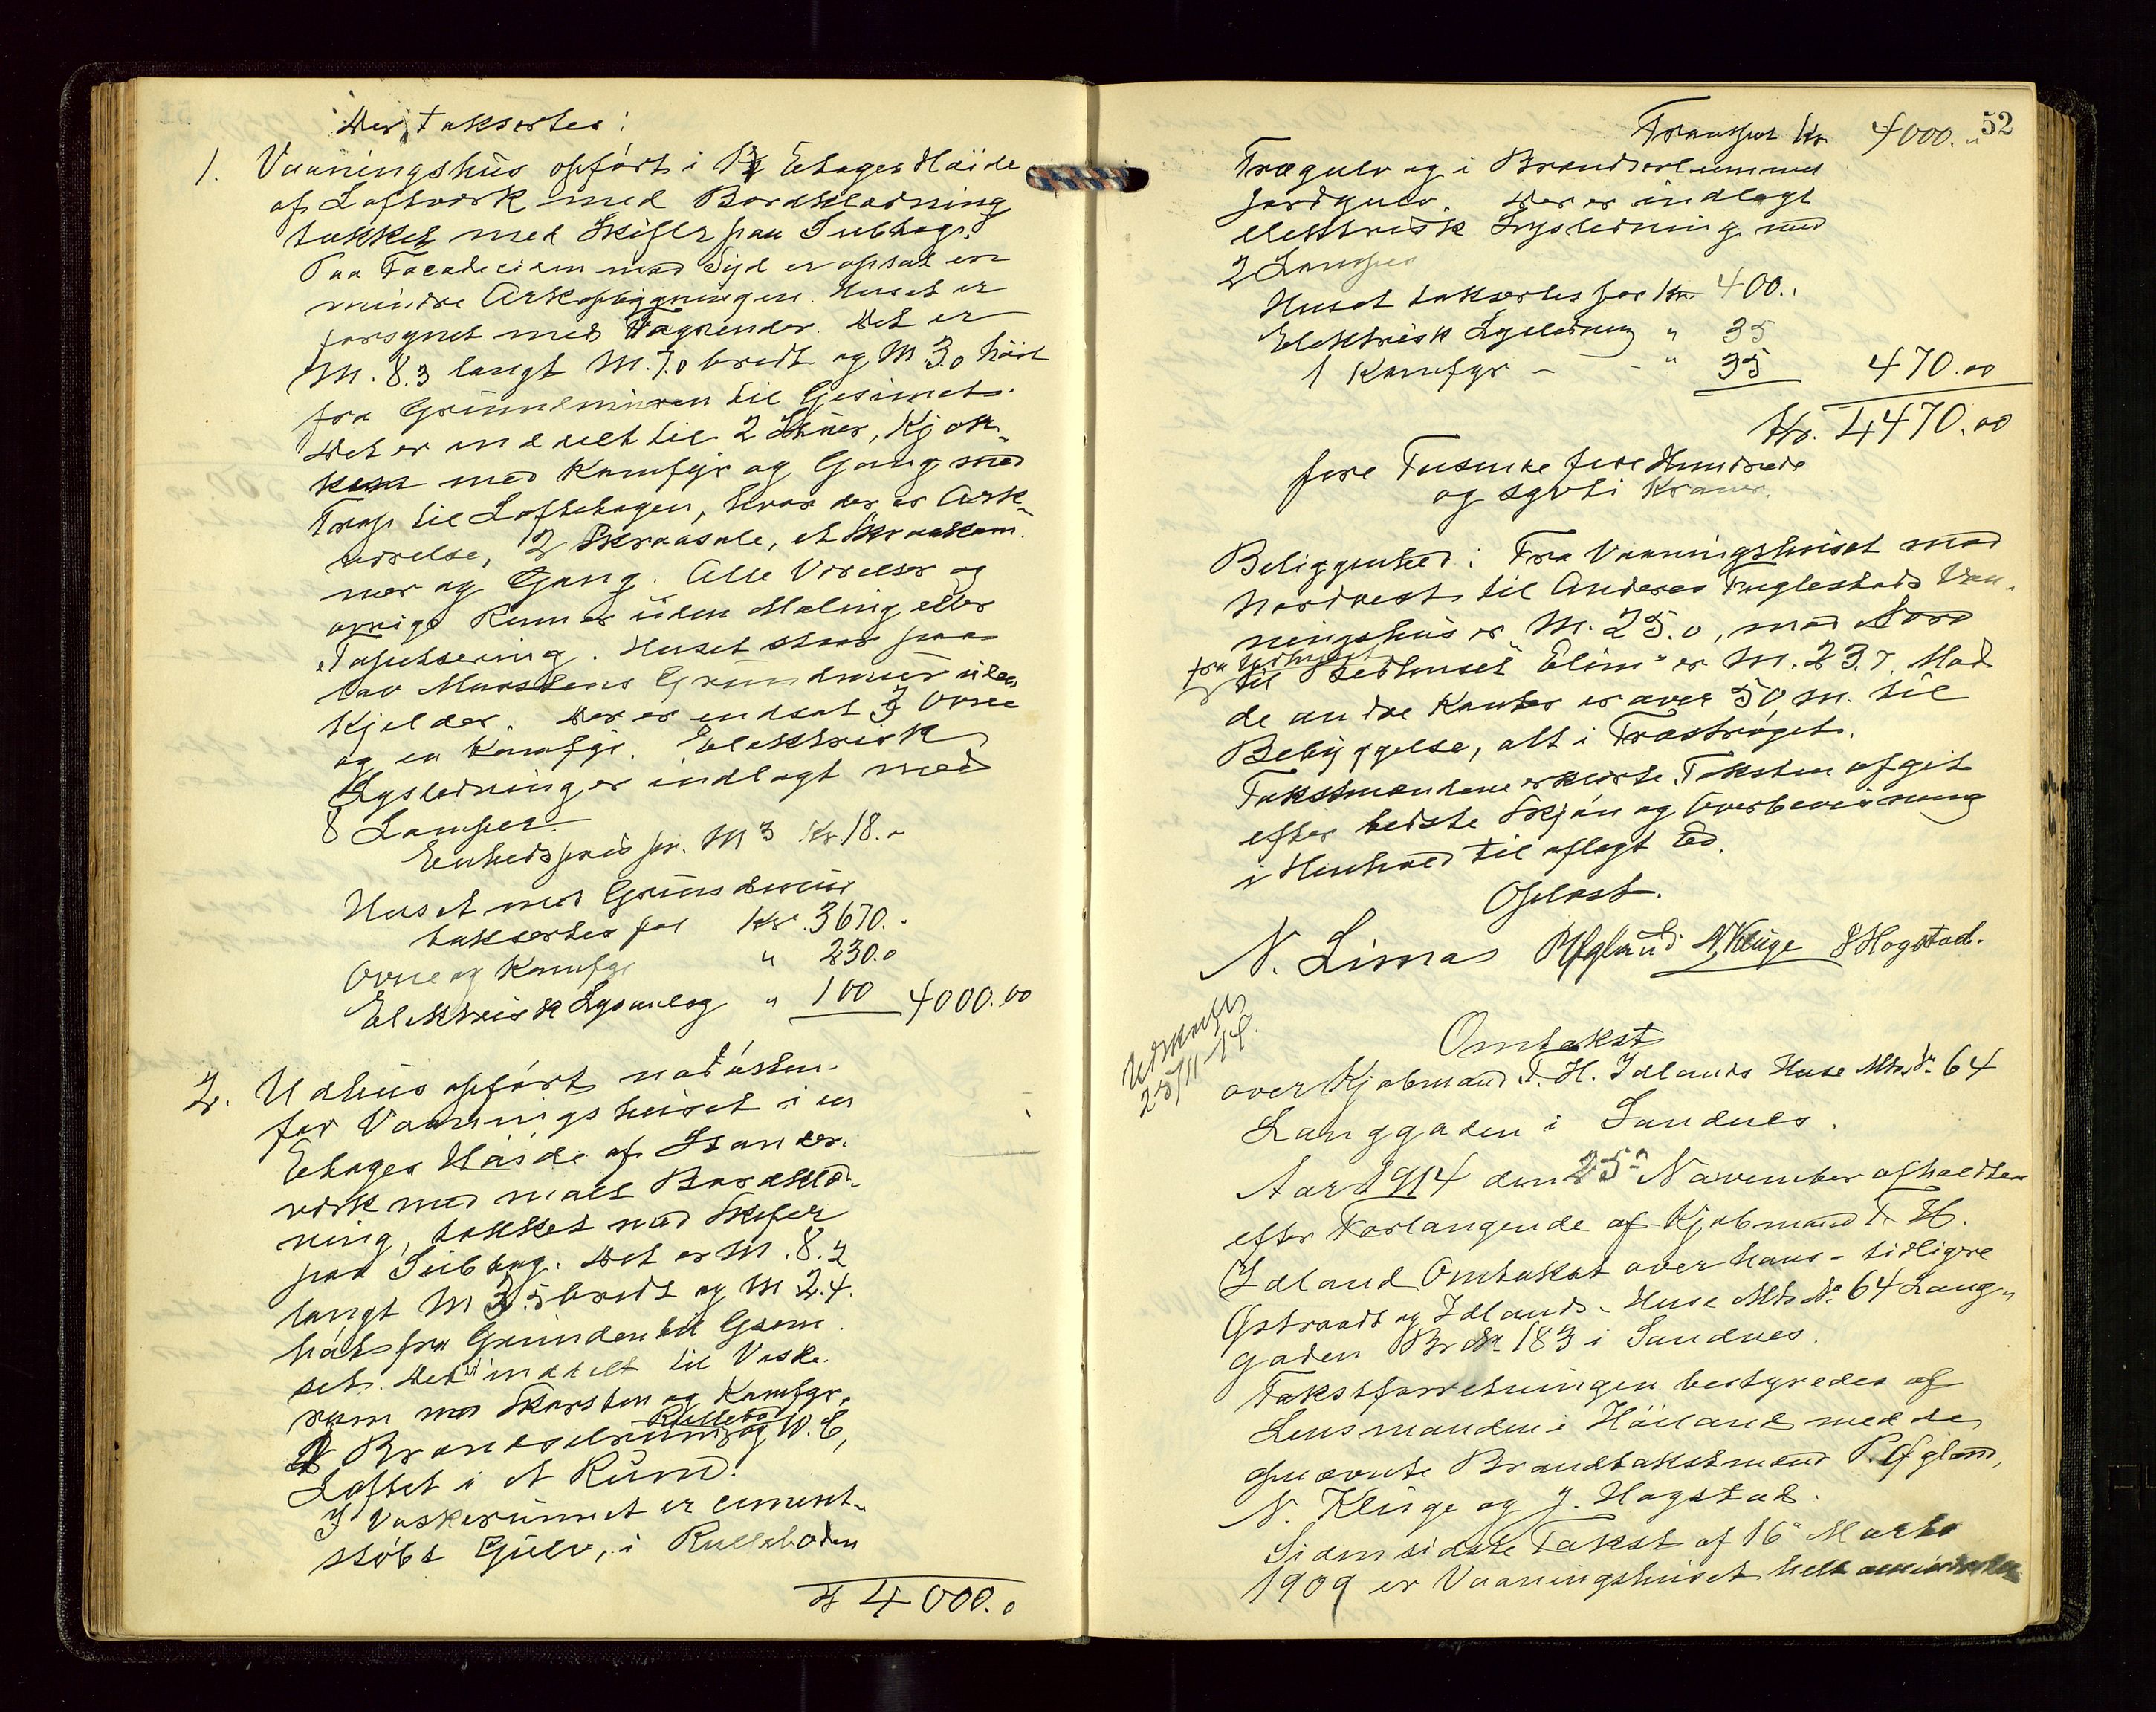 Der taksertes:
1. Vaaningshus opført i 1½ Etages Høide
af Laftverk med Bordklædning
tækket med Skifer paa Subtag.
Paa Facadesiden mod Syd er opsat en
mindre Arkopbygningen. Huset er
forsynet med Tagrender. Det er
M. 8.3 langt M. 7.0 bredt og M 3.0 høit
fra Grundmuren til Gesimet.
Det er inddelt til 2 Stuer, Kjøk-
ken med Komfyr og Gang med
Trap til Loftetagen, hvor der er Ark-
værelse, 2 Skraasale, et Skraakam-
mer og Gang. Alle Værelser og
øvrige Rum er uden Maling eller
Tapetsering. Huset staar paa
lav Murstens Grundmur uden
Kjelder. Der er indsat 3 Ovne
og en Komfyr. Elektrisk
Lysledning er indlagt med
8 Lamper.
Enhedspris pr. M3 Kr. 18.-
Huset med Grundmur
taksertes for Kr. 3670.-
Ovne og Komfyr " 230.0
Elektrisk Lysanlæg " 100 4000.00
2. Udhus opført nordøsten-
for Vaaningshuset i en
Etages Høide af Stander-
verk med malt Bordklæd-
ning, tækket med Skifer
paa Subtag. Det er M. 8.2
langt M 3.5 bredt og M 2.4.
høit fra Grunden til Gesim-
set. Det er inddelt til Vaske-
rum med Skorsten og Komfyr,
Rullebod
Brændselrum og W. C,
Loftet i et Rum.
I Vaskerummet er cement-
støbt Gulv, i Rulleboden
Kr 4000.0
52
Transport Kr. 4000.-
Trægulv og i Brændselrummet
Jordgulv. Der er indlagt
elektrisk Lysledning med
2 Lamper
Huset taksertes for Kr. 400.-
Elektrisk Lysledning " 35
1 Komfyr - - " 35 470.00
Kr. 4470.00
fire Tusinde fire Hundrede
og sytti Kroner.
Beliggenhed: Fra Vaaningshuset mod
Nordvest til Anderes Fuglestads Vaa-
ningshus er M. 25.0, mod Nord
fra Udhuset
til Bedhuset "Elim" er M. 23.7. Mod
de andre Kanter er over 50 M. til
Bebyggelse, alt i Træstrøget.
Takstmændene erklærte Taksten afgit
efter bedste Skjøn og Overbevisning
i Henhold til aflagt Ed.
Oplæst.
N. Limas P Ofgland N. Kluge J Hogstad.
Udskrift
25/11-14.
Omtakst
over Kjøbmand T. H. Idlands Huse Mtr. Nr. 64
Langgaden i Sandnes.
Aar 1914 den 25de November afholdtes
efter Forlangende af Kjøbmand T. H.
Idland Omtakst over hans - tidligere
Gstrandt og Idlands - Huse Mtr No. 64 Lang-
gaden Br. Nr 183 i Sandnes.
Takstforretningen bestyredes af
Lensmanden i Høiland med de
opnævnte Brandtakstmænd P. Ofgland,
N. Kluge og J. Hogstad.
Siden sidste Takst af 16de Marts
1909 er Vaaningshuset helt